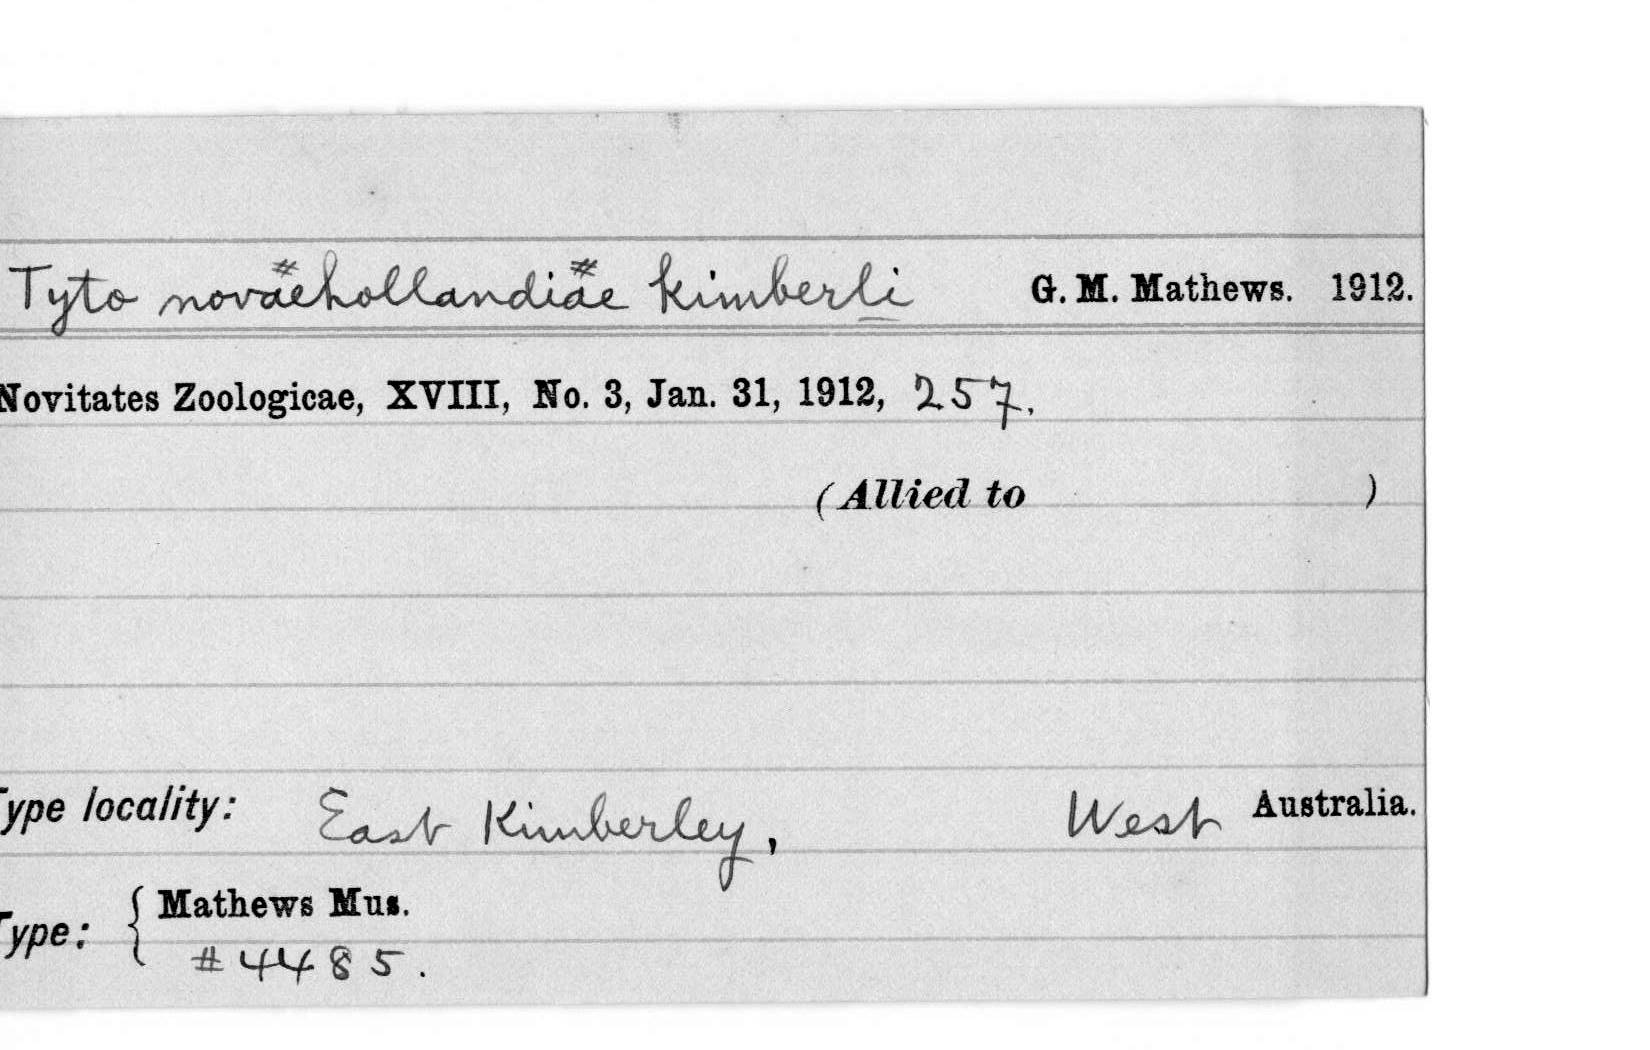 Tyto novaehollandiae kimberli G. M. Mathews. 1912.
Novitates Zoologicae, XVIII, No. 3, Jan. 31, 1912, 257.
(Allied to )
Type locality: East Kimberley, West Australia.
Type: { Mathews Mus.
#4485.